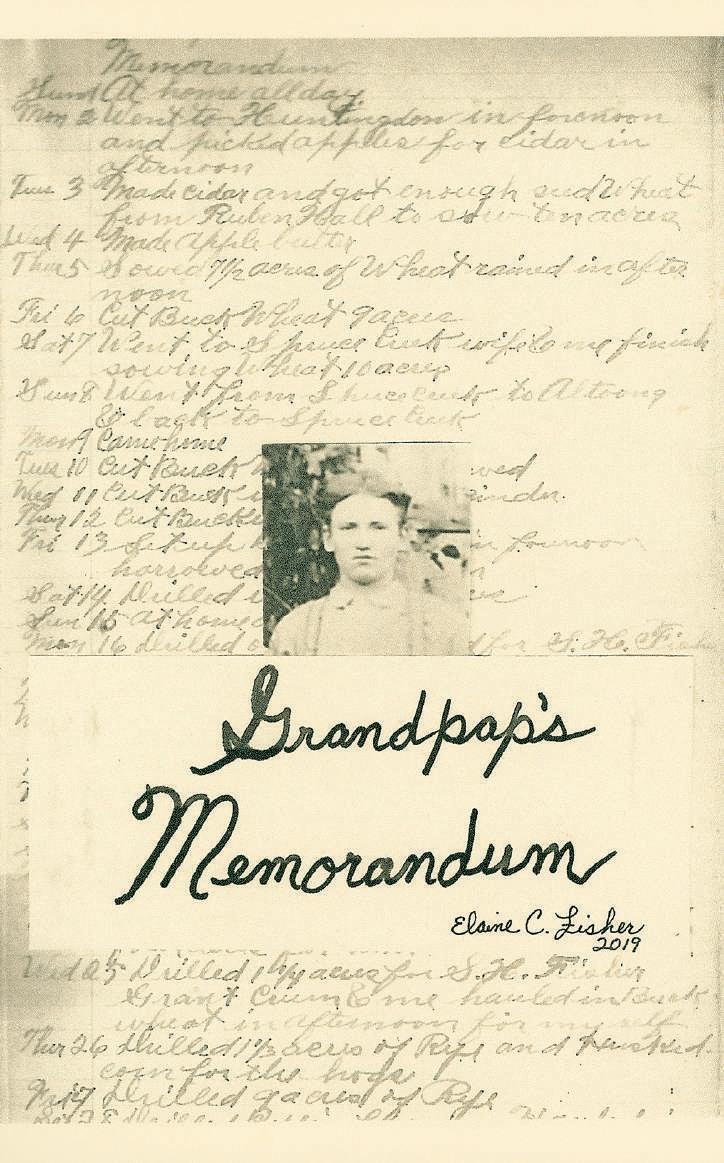 Memorandum
Sun 1 At home all day
Mon 2 Went to Huntingdon in forenoon
and picked apples for cidar in
afternoon
Tues 3 Made cidar and got enough sed Wheat
from Ruben Hall to sow ten acres
Wed 4 Made Apple butter
Thur 5 Sowed 7 1/2 acres of Wheat rained in after
noon
Fri 6 Cut Buck Wheat 9 acres
Sat 7 Went to Spruce Creek wife & me finish
sowing Wheat 10 acres
Sun 8 Went from Spruce Creek to Altoona
& back to Spruce Creek
Mon 9 Came home
Tues 10 Cut Buck
Wed 11 Cut Buck
Thur 12 Cut Buck
Fri 13 Set up in forenoon
harrowed
Sat 14 Drilled
Sun 15 At home
Mon 16 Drilled for S. H. Fishe
Grandpap's
Memorandum
Elaine C. Fisher
2019
Wed 25 Drilled acres for S. H. Fisher
Grant Crum & me hauled in Buck
wheat in afternoon for my self
Thur 26 Drilled 1 1/3 acres of Rye and husked
corn for the hogs
Fri 27 Drilled 9 acres of Rye